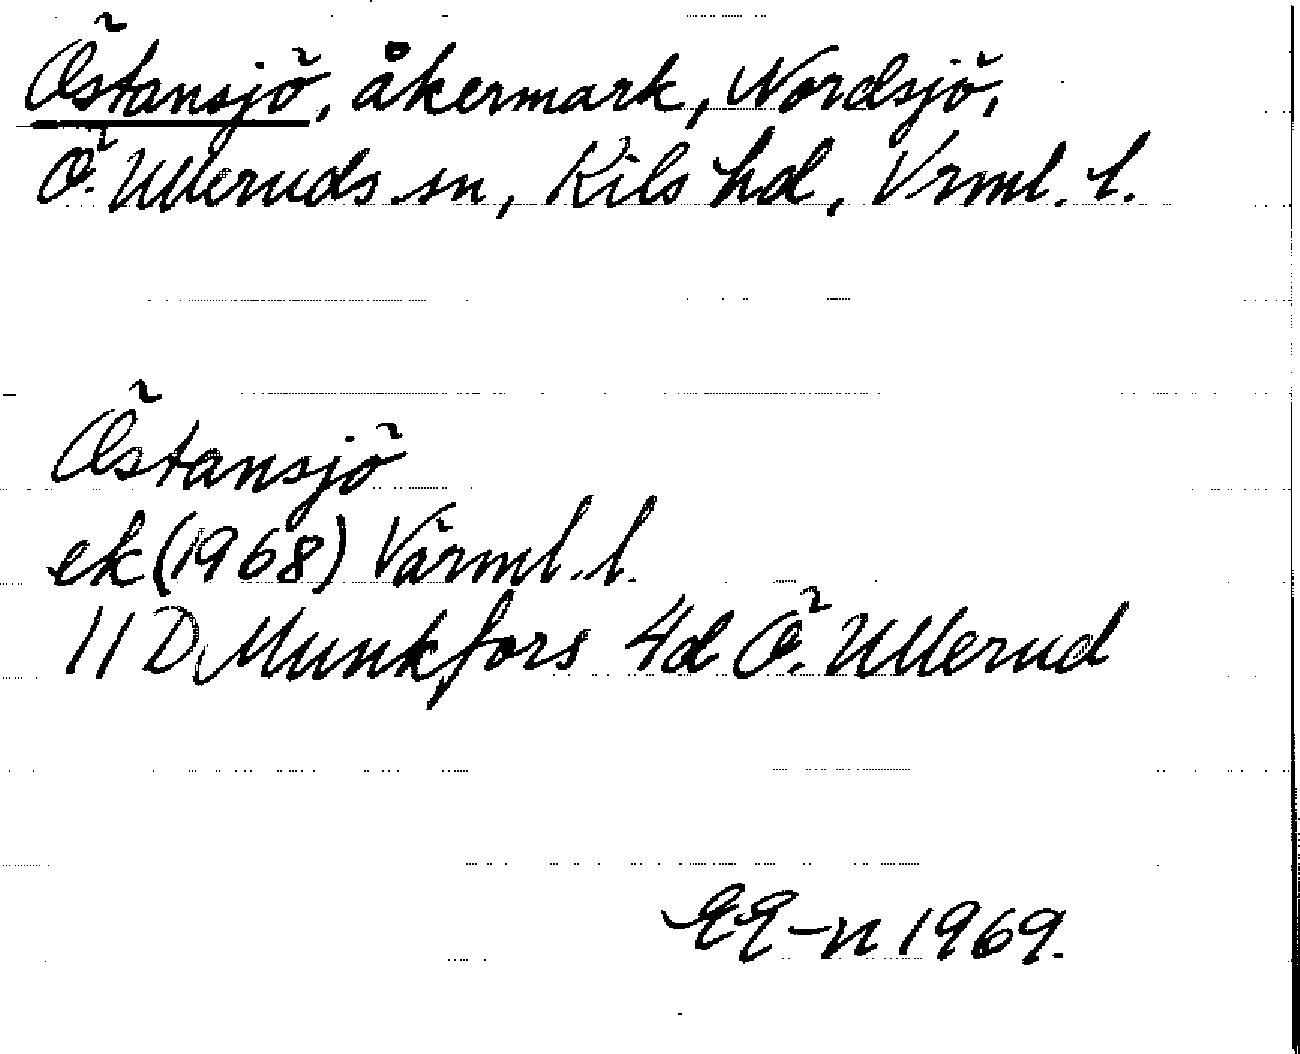 Östansjö, åkermark, Nordsjö,
Ö. Ulleruds sn, Kils hd, Vrml. l.
Östansjö
ek (1968) Värml. l.
11 D Munkfors 4d Ö. Ullerud
EE-n 1969.